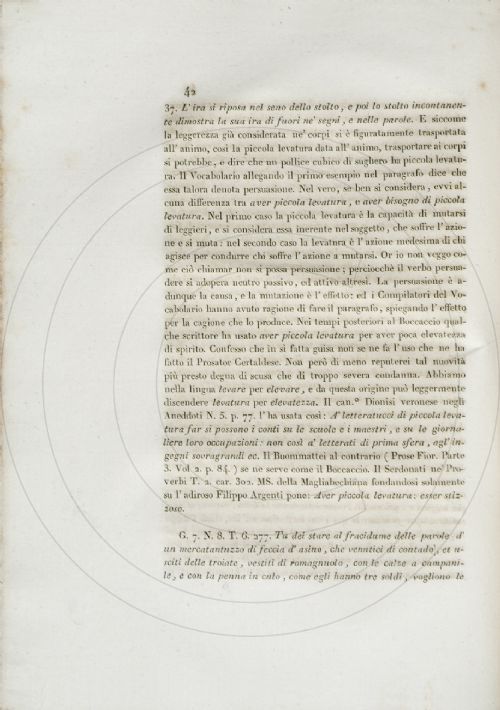 42
37. L' ira si riposa nel seno dello stolto, e poi lo stolto incontanen-
te dimostra la sua ira di fuori ne' segni, e nelle parole. E siccome
la leggerezza già considerata ne' corpi si è figuratamente trasportata
all' animo, così la piccola levatura data all' animo, trasportare ai corpi
si potrebbe, e dire che un pollice cubico di sughero ha piccola levatu-
ra. Il Vocabolario allegando il primo esempio nel paragrafo dice che
essa talora denota persuasione. Nel vero, se ben si considera, evvi al-
cuna differenza tra aver piccola levatura, e aver bisogno di piccola
levatura. Nel primo caso la piccola levatura è la capacità di mutarsi
di leggieri, e si considera essa inerente nel soggetto, che soffre l' azio-
ne e si muta: nel secondo caso la levatura è l' azione medesima di chi
agisce per condurre chi soffre l' azione a mutarsi. Or io non veggo co-
me ciò chiamar non si possa persuasione; perciocchè il verbo persua-
dere si adopera neutro passivo, ed attivo altresì. La persuasione è a-
dunque la causa, e la mutazione è l' effetto: ed i Compilatori del Vo-
cabolario hanno avuto ragione di fare il paragrafo, spiegando l' effetto
per la cagione che lo produce. Nei tempi posteriori al Boccaccio qual-
che scrittore ha usato aver piccola levatura per aver poca elevatezza
di spirito. Confesso che in sì fatta guisa non se ne fa l' uso che ne ha
fatto il Prosator Certaldese. Non però di meno reputerei tal novità
più presto degna di scusa che di troppo severa condanna. Abbiamo
nella lingua levare per elevare, e da questa origine può leggermente
discendere levatura per elevatezza. Il can.° Dionisi veronese negli
Aneddoti N. 5. p. 77. l' ha usata così: A' letteratucci di piccola leva-
tura far si possono i conti su le scuole e i maestri, e su le giorna-
liere loro occupazioni: non così a' letterati di prima sfera, agl' in-
gegni sovragrandi ec. Il Buommattei al contrario (Prose Fior. Parte
3. Vol. 2. p. 84.) se ne serve come il Boccaccio. Il Serdonati ne' Pro-
verbi T. 2. car. 302. MS. della Magliabechiana fondandosi solamente
su l' adiroso Filippo Argenti pone: Aver piccola levatura: esser stiz-
zoso.
G. 7. N. 8. T. 6. 277. Tu dei stare al fracidume delle parole d'
un mercatantuzzo di feccia d' asino, che venutici di contado, et u-
sciti delle troiate, vestiti di romagnuolo, con le calze a campani-
le, e con la penna in culo, come egli hanno tre soldi, vogliono le